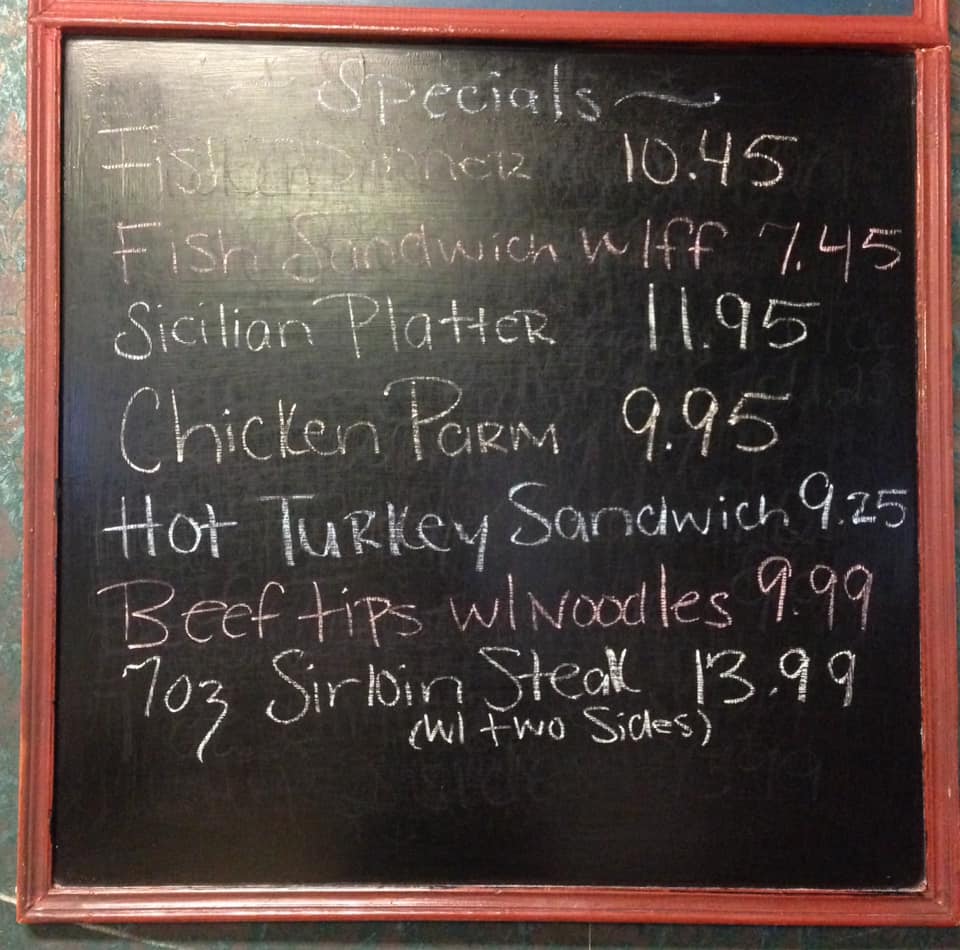 Specials
Fish Dinner 10.45
Fish Sandwich w/ff 7.45
Sicilian Platter 11.95
Chicken Parm 9.95
Hot Turkey Sandwich 9.25
Beef tips w/Noodles 9.99
7oz Sirloin Steak 13.99
(w/ two Sides)